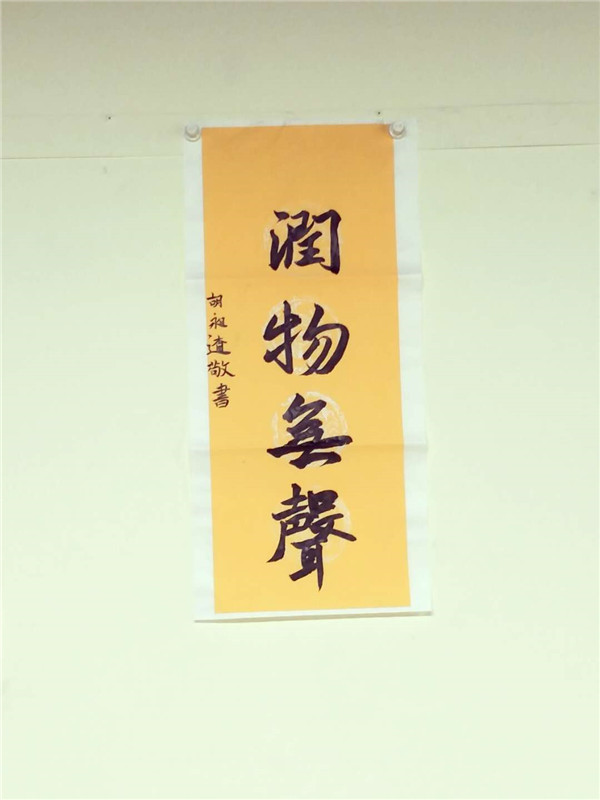 潤物無聲
胡祖遠敬書